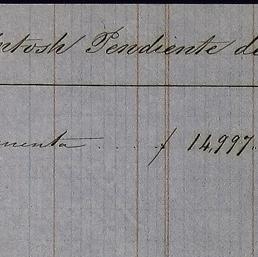 ntosh Pendiente de
menta .... $ 14,997.